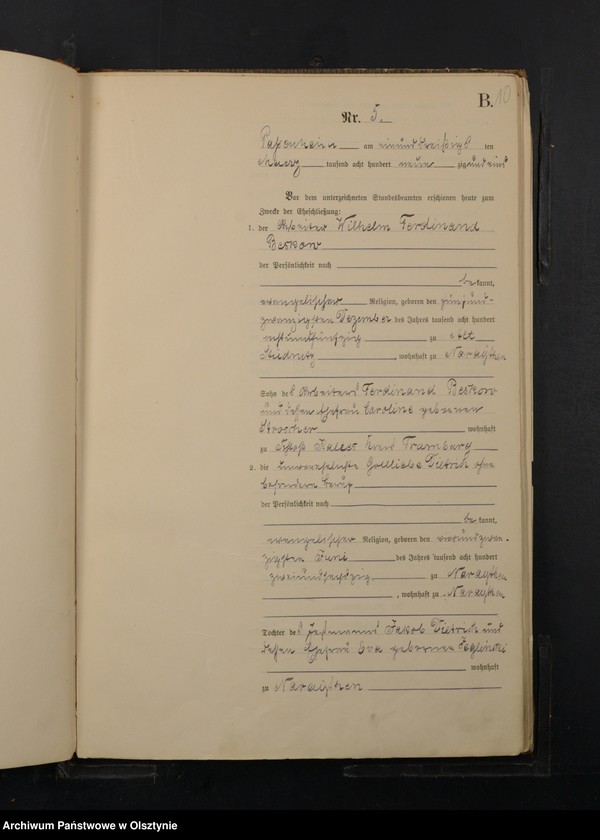 B. 10
Nr. 5.
Passenheim am einunddreißigsten
Maerz tausend acht hundert neun zig und eins
Vor dem unterzeichneten Standesbeamten erschienen heute zum
Zwecke der Eheschließung:
1. der Arbeiter Wilhelm Ferdinand
Beskow
der Persönlichkeit nach
be kannt,
evangelischer Religion, geboren den fünfund-
zwanzigsten Dezember des Jahres tausend acht hundert
achtundfünfzig zu Alt
Stüdnitz, wohnhaft zu Narajthen
Sohn des Arbeiters Ferdinand Beskow
und dessen Ehefrau Caroline geborenen
wohnhaft
zu Kreis Dramburg
2. die unverehelichte Gottliebe Dietrich ohne
besonderen Beruf
der Persönlichkeit nach
be kannt,
evangelischer Religion, geboren den vierundzwan-
zigsten Juni des Jahres tausend acht hundert
zweiundsechszig zu Narajthen
, wohnhaft zu Narajthen
Tochter des Jakob Dietrich und
dessen Ehefrau Eva geborenen
wohnhaft
zu Narajthen
Archiwum Państwowe w Olsztynie